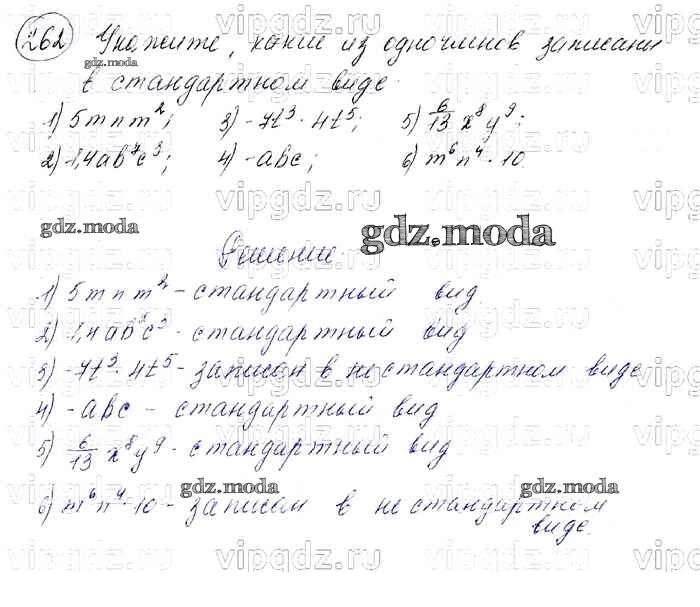 262 Укажите, какие из одночленов записаны
gdz.moda
в стандартном виде.
1) 5mnm²; 3) -7t³ · 4t⁵; 5) 6/13 x⁸y⁹;
2) -1,4ab⁷c³; 4) -abc; 6) m⁶n⁴ · 10.
gdz.moda
gdz.moda
Решение.
1) 5mnm² - стандартный вид.
2) -1,4ab⁷c³ - стандартный вид
3) -7t³ · 4t⁵ - записан в нестандартном виде
4) -abc - стандартный вид
5) 6/13 x⁸y⁹ - стандартный вид
gdz.moda gdz.moda
6) m⁶n⁴ · 10 - записан в нестандартном
виде.
vipgdz.ru